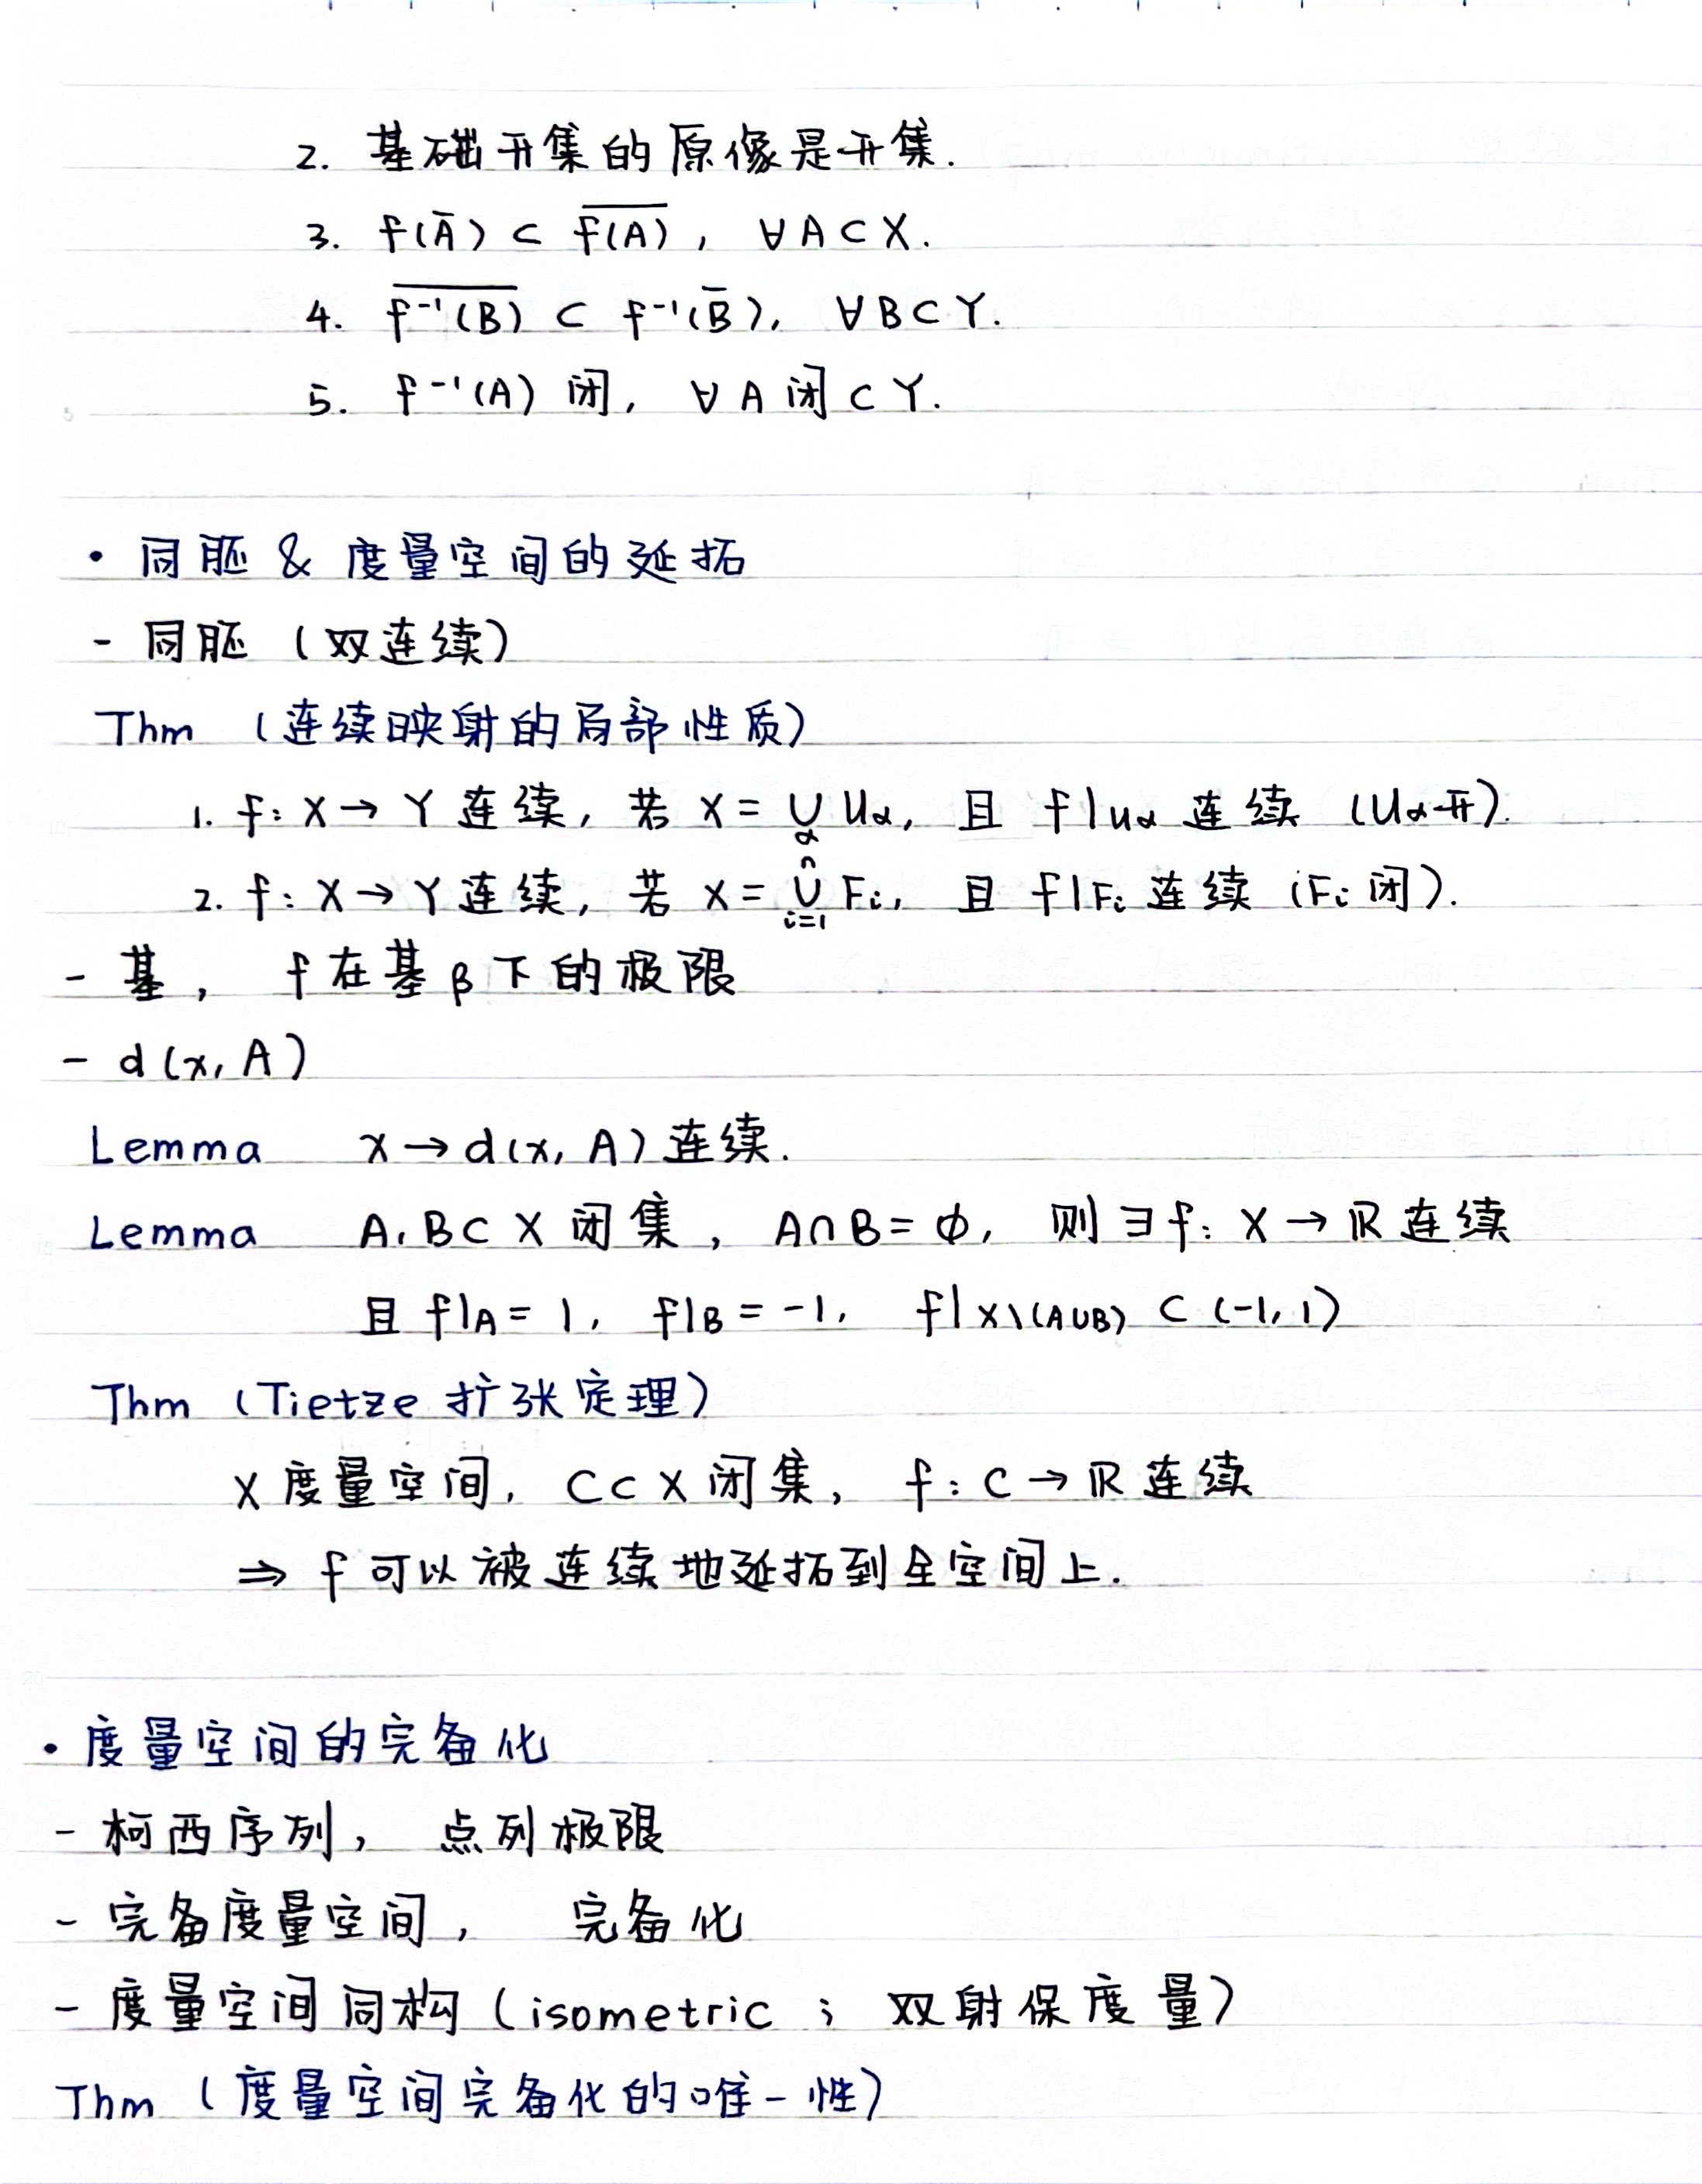 2. 基础开集的原像是开集.
3. f(Ā) ⊂ \overline{f(A)}, ∀A⊂X.
4. \overline{f⁻¹(B)} ⊂ f⁻¹(B̄), ∀B⊂Y.
5. f⁻¹(A) 闭, ∀A闭⊂Y.
• 同胚 & 度量空间的延拓
- 同胚 (双连续)
Thm (连续映射的局部性质)
1. f: X→Y 连续, 若 X = ⋃_α U_α, 且 f|_{U_α} 连续 (U_α 开).
2. f: X→Y 连续, 若 X = ⋃_{i=1}^n F_i, 且 f|_{F_i} 连续 (F_i 闭).
- 基, f在基β下的极限
- d(x, A)
Lemma x→d(x, A) 连续.
Lemma A, B⊂X 闭集, A∩B=∅, 则∃f: X→ℝ 连续
且 f|_A = 1, f|_B = -1, f|_{X\(A∪B)} ⊂ (-1, 1)
Thm (Tietze 扩张定理)
X 度量空间, C⊂X 闭集, f: C→ℝ 连续
⇒ f 可以被连续地延拓到全空间上.
• 度量空间的完备化
- 柯西序列, 点列极限
- 完备度量空间, 完备化
- 度量空间同构 (isometric ; 双射保度量)
Thm (度量空间完备化的唯一性)